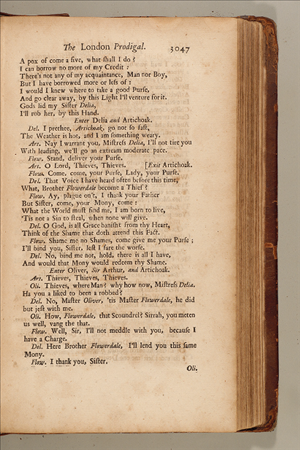 The London Prodigal. 3047
A pox of come a five, what shall I do?
I can borrow no more of my Credit:
There's not any of my acquaintance, Man nor Boy,
But I have borrowed more or less of:
I would I knew where to take a good Purse,
And go clear away, by this Light I'll venture for it.
Gods lid my Sister Delia,
I'll rob her, by this Hand.
Enter Delia and Artichoak.
Del. I prethee, Artichoak, go not so fast,
The Weather is hot, and I am something weary.
Art. Nay I warrant you, Mistress Delia, I'll not tire you
With leading, we'll go an extream moderate pace.
Flow. Stand, deliver your Purse.
Art. O Lord, Thieves, Thieves. [Exit Artichoak.
Flow. Come, come, your Purse, Lady, your Purse.
Del. That Voice I have heard often before this time,
What, Brother Flowerdale become a Thief?
Flow. Ay, plague on't, I thank your Father
But Sister, come, your Mony, come:
What the World must find me, I am born to live,
'Tis not a Sin to steal, when none will give.
Del. O God, is all Grace banisht from thy Heart,
Think of the Shame that doth attend this Fact.
Flow. Shame me no Shames, come give me your Purse;
I'll bind you, Sister, lest I fare the worse.
Del. No, bind me not, hold, there is all I have,
And would that Mony would redeem thy Shame.
Enter Oliver, Sir Arthur, and Artichoak.
Art. Thieves, Thieves, Thieves.
Oli. Thieves, where Man? why how now, Mistress Delia.
Ha you a liked to been a robbed?
Del. No, Master Oliver, 'tis Master Flowerdale, he did
but jest with me.
Oli. How, Flowerdale, that Scoundrel? Sirrah, you meten
us well, vang thee that.
Flow. Well, Sir, I'll not meddle with you, because I
have a Charge.
Del. Here Brother Flowerdale, I'll lend you this same
Mony.
Flow. I thank you, Sister.
Oli.